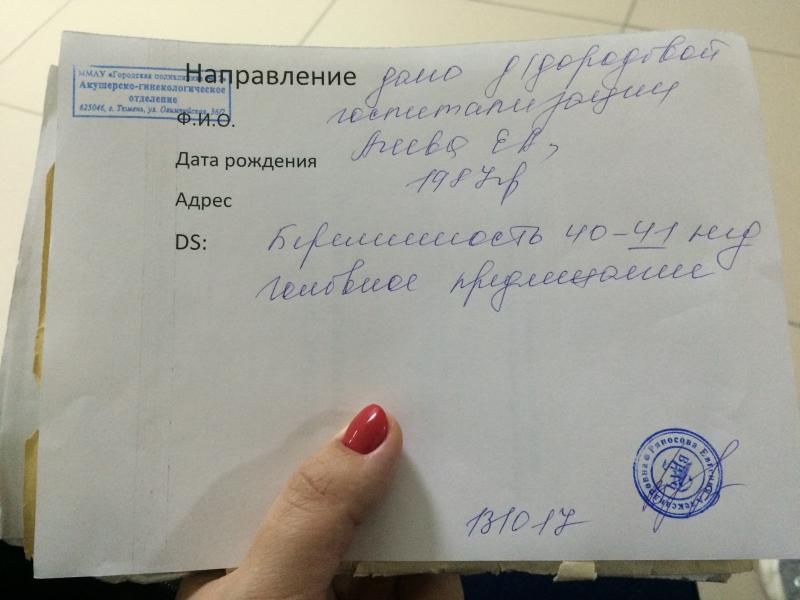 ММАУ «Городская поликлиника
Акушерско-гинекологическое
отделение
625046, г. Тюмень, ул. Олимпийская, 36/2
Направление дано д/дородовой
госпитализации
Ф.И.О.
ЕА,
Дата рождения
1987гр
Адрес
DS: Беременность 40-41 нед
головное предлежание
Ряпосова Евгения Александровна
131017